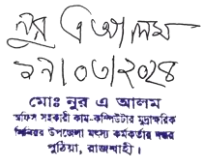 নুর এ আলম
২৭/০৩/২০২৪
মোঃ নুর এ আলম
অফিস সহকারী কাম-কম্পিউটার মুদ্রাক্ষরিক
সিনিয়র উপজেলা মৎস্য কর্মকর্তার দপ্তর
পুঠিয়া, রাজশাহী।